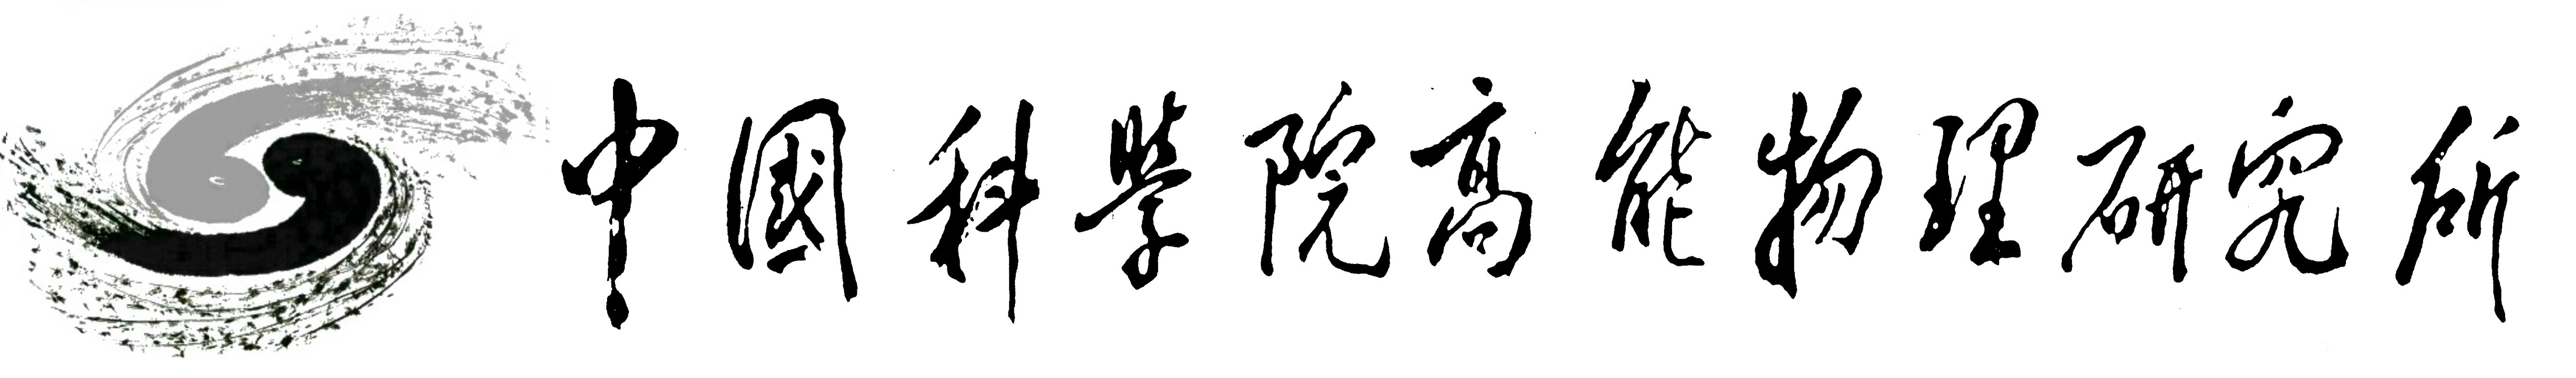 中國科學院高能物理研究所